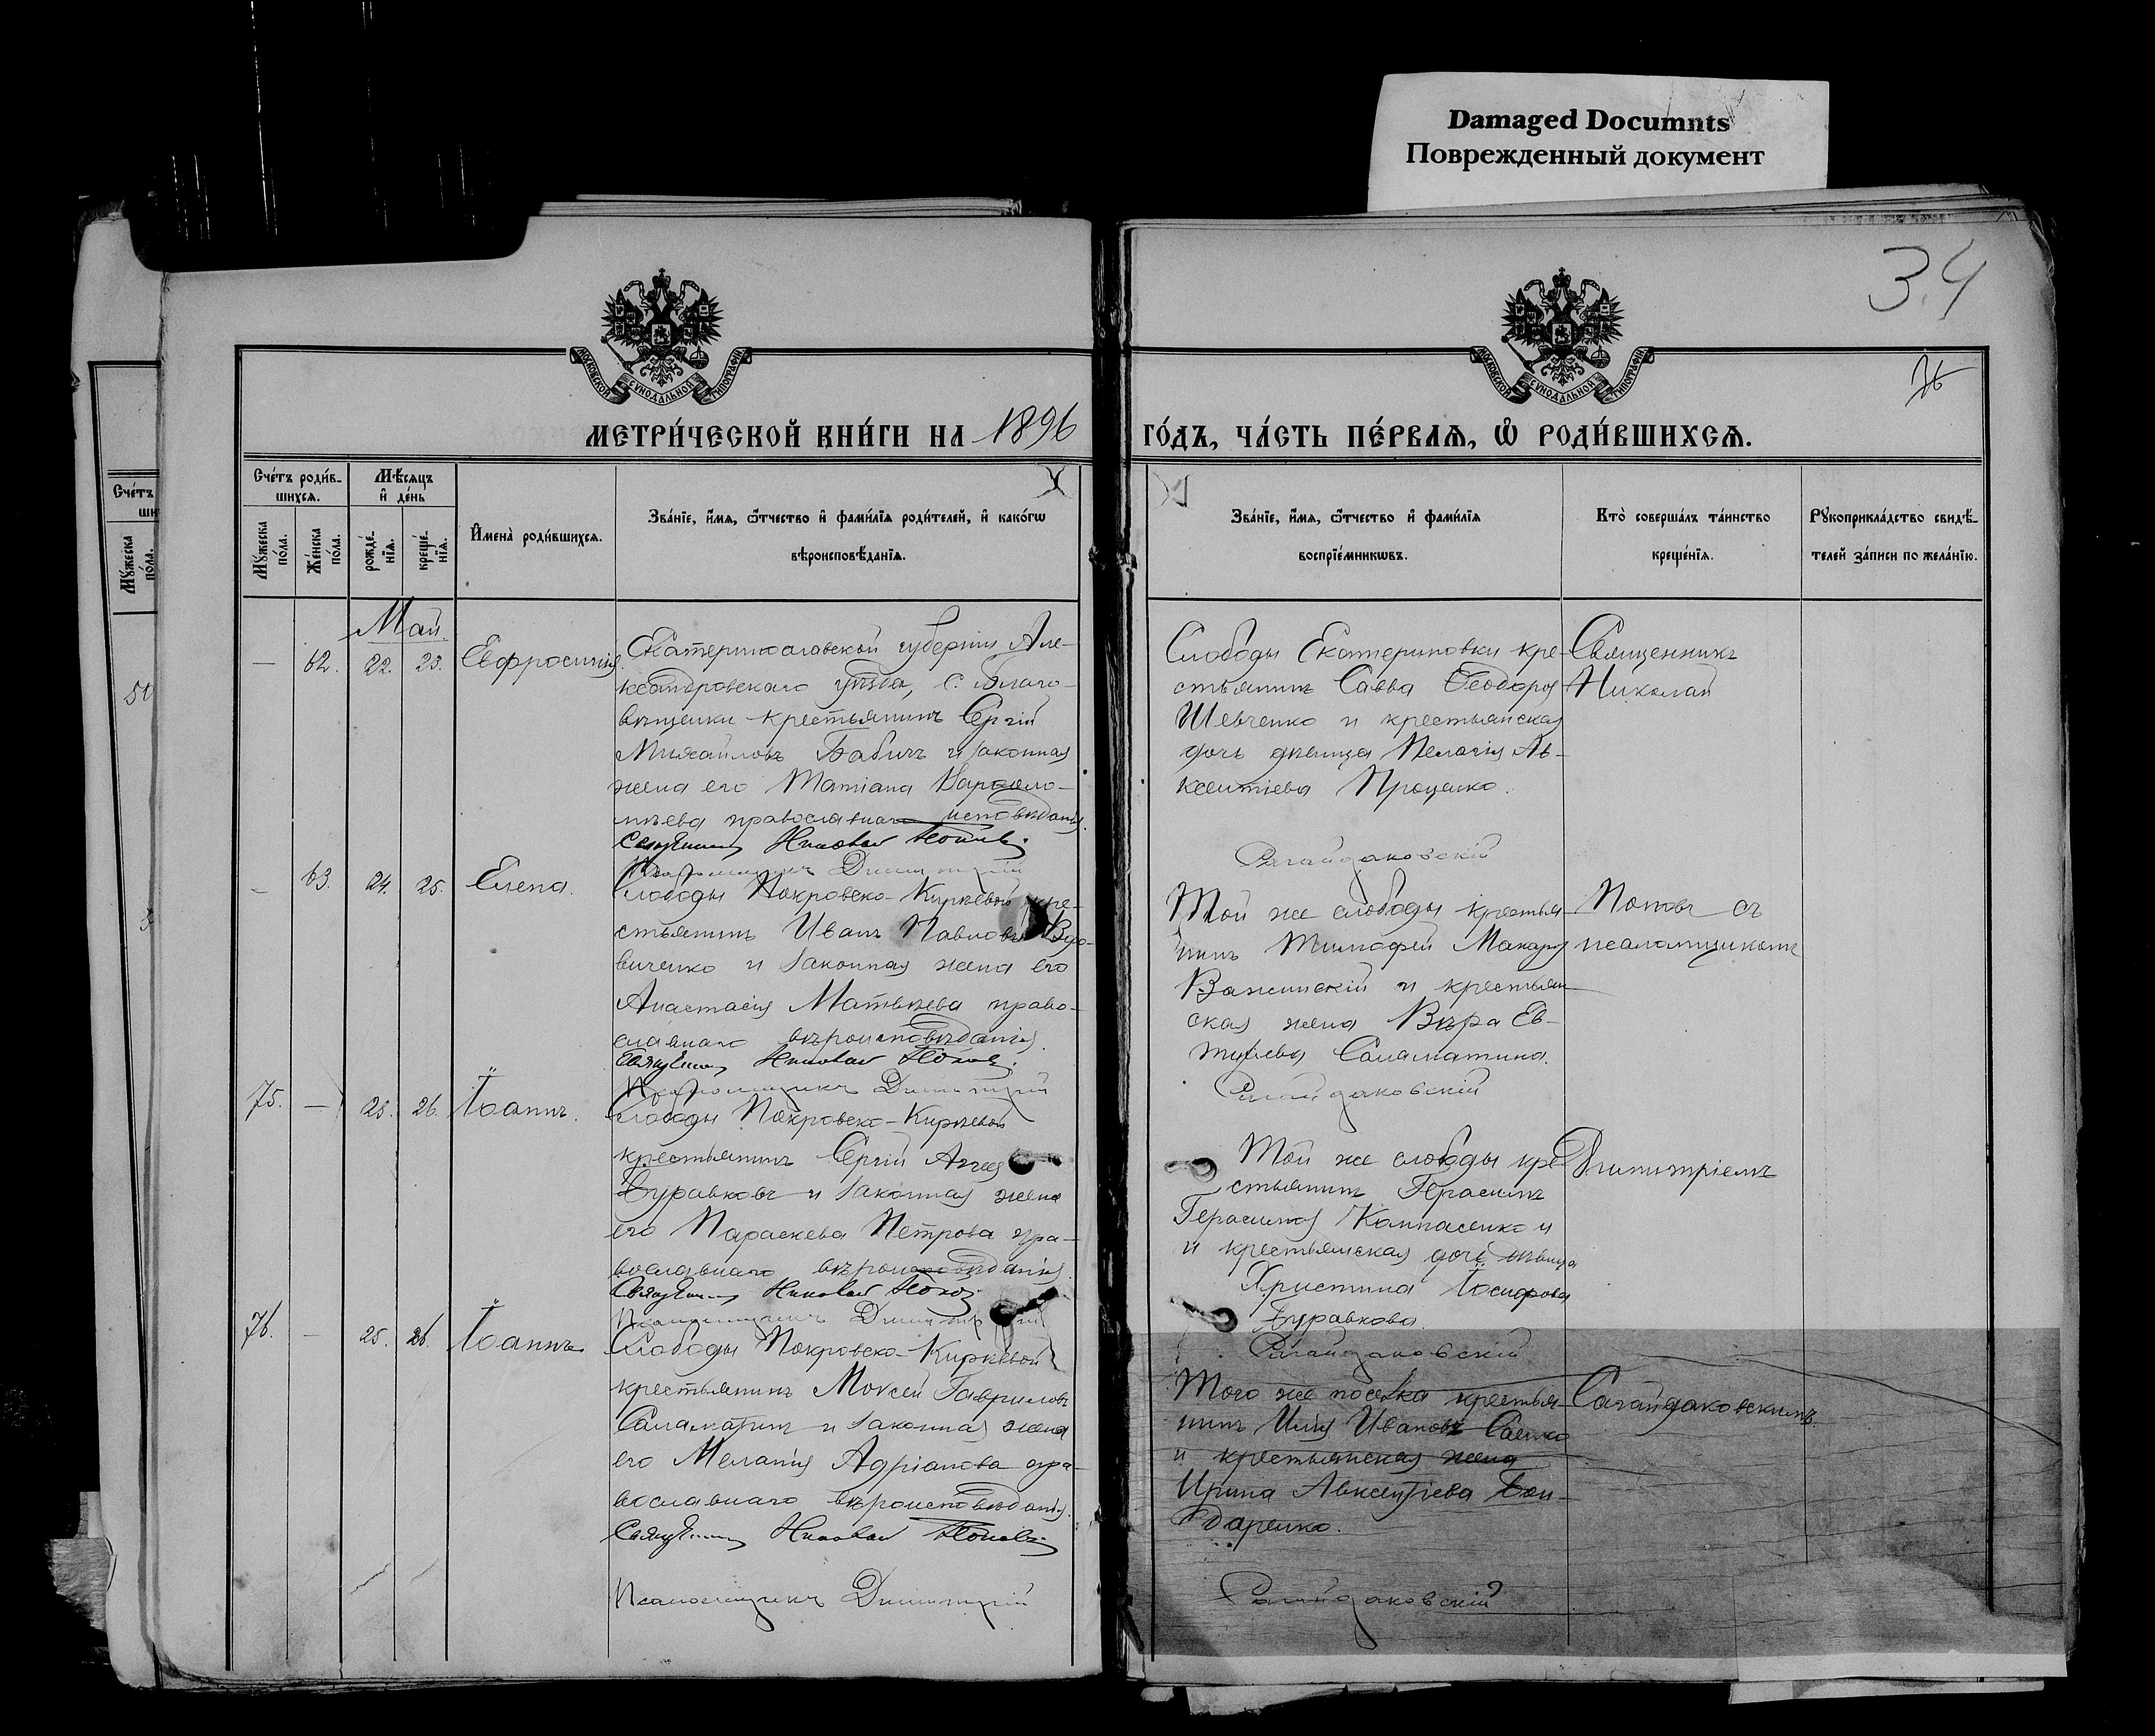 Damaged Documnts
Поврежденный документ
34
76
МОСКОВСКОЙ СУНОДАЛЬНОЙ ТИПОГРАФІИ
МОСКОВСКОЙ СУНОДАЛЬНОЙ ТИПОГРАФІИ
МЕТРИ́ЧЕСКОЙ КНИ́ГИ НА 1896 ГО́ДЪ, ЧА́СТЬ ПЕ́РВАЯ, Ѽ РОДИ́ВШИХСЯ.
Сче́тъ роди́в-
шихся.
Мѣ́сяцъ
и҆ де́нь
Мꙋ́жеска
по́ла.
Же́нска
по́ла.
рожде́-
нїѧ.
креще́-
нїѧ.
И҆мена̀ роди́вшихсѧ.
Зва́нїе, и҆́мѧ, ѻ҆́тчество и҆ фами́лїѧ роди́телей, и҆ како́гѡ
вѣроисповѣ́данїѧ.
Зва́нїе, и҆́мѧ, ѻ҆́тчество и҆ фами́лїѧ
воспрїе́мникѡвъ.
Кто̀ соверша́лъ та́инство
креще́нїѧ.
Рꙋкоприкла́дство свидѣ́-
телей за́писи по жела́нїю.
Май.
— 62. 22. 23. Евфросинія.
Екатеринославской губерніи Але-
ксандровскаго уѣзда, с. Благо-
вѣщенки крестьянинъ Сергій
Михайловъ Бабичъ и законная
жена его Татіана Варѳоло-
мѣева православнаго исповѣданія.
Священникъ Николай Поповъ
Псаломщикъ Димитрій
Слободы Екатериновки кре-
стьянинъ Савва Ѳеодоровъ
Шевченко и крестьянская
дочь дѣвица Пелагія Ав-
ксентіева Проценко.
Сагайдаковскій
Священникъ
Николай
— 63. 24. 25. Елена.
Слободы Покровско-Кирѣевой кре-
стьянинъ Иванъ Павловъ Вдо-
виченко и законная жена его
Анастасія Матвѣева право-
славнаго вѣроисповѣданія.
Священникъ Николай Поповъ.
Псаломщикъ Димитрій
Той же слободы крестья-
нинъ Тимофей Макаровъ
и крестьян-
ская жена Вѣра Ев-
Саламатина.
Сагайдаковскій
Поповъ съ
псаломщикомъ
75. — 25. 26. Іоаннъ.
Слободы Покровско-Кирѣевой
крестьянинъ Сергій
Журавковъ и законная жена
его Параскева Петрова пра-
вославнаго вѣроисповѣданія.
Священникъ Николай Поповъ
Псаломщикъ Димитрій
Той же слободы кре-
стьянинъ Герасимъ
Герасимовъ и
и крестьянская дочь дѣвица
Христина Іосифова
Журавкова.
Сагайдаковскій
Димитріемъ
76. — 25. 26. Іоаннъ.
Слободы Покровско-Кирѣевой
крестьянинъ Моисей Гавриловъ
Саламатинъ и законная жена
его Меланія Адріанова пра-
вославнаго вѣроисповѣданія.
Священникъ Николай Поповъ
Псаломщикъ Димитрій
Того же поселка крестья-
нинъ Илія Ивановъ Саенко
и крестьянская жена
Ирина Авксентіева Бон-
даренко.
Сагайдаковскій
Сагайдаковскимъ.